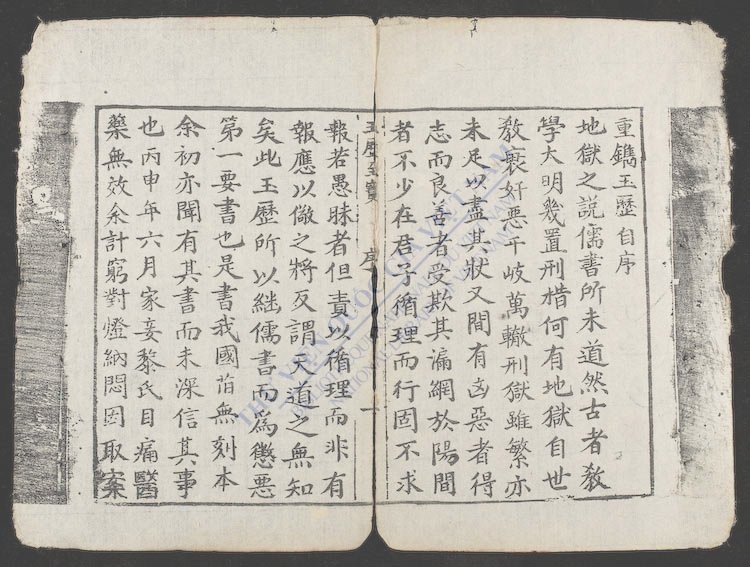 重鐫玉歷自序
地獄之説儒書所未道然古者教
學大明幾置刑措何有地獄自世
教衰奸惡千岐萬轍刑獄雖繁亦
未足以盡其狀又間有凶惡者得
志而良善者受欺其漏網於陽間
者不少在君子循理而行固不求
玉歷至寶 序 一
報若愚昧者但責以循理而非有
報應以儆之將反謂天道之無知
矣此玉歷所以継儒書而為懲惡
第一要書也是書我國昔無刻本
余初亦聞有其書而未深信其事
也丙申年六月家妾黎氏目痛醫
藥無效余計窮對燈納悶因取案
THƯ VIỆN QUỐC GIA VIỆT NAM